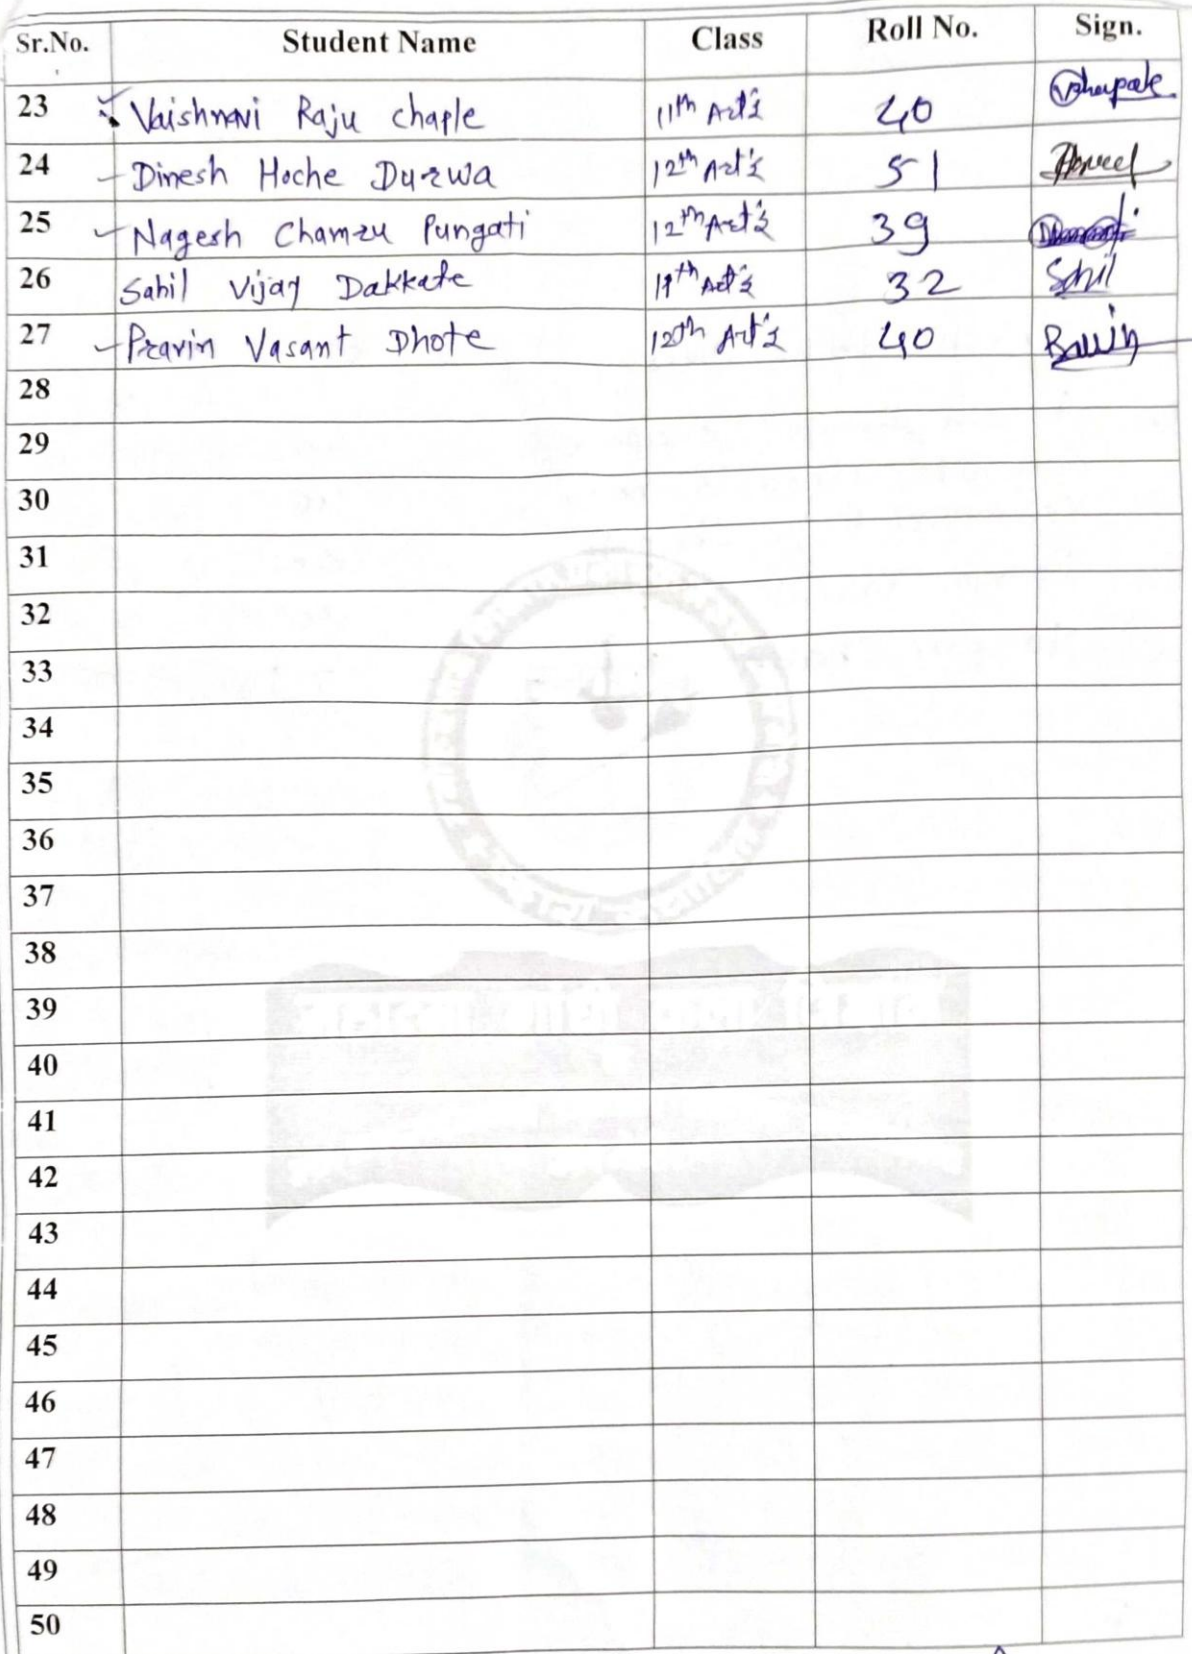 Sr.No. Student Name Class Roll No. Sign.
23 Vaishnavi Raju chaple 11th Art's 40
24 Dinesh Hoche Durwa 12th Art's 51
25 Nagesh Chamru Pungati 12th Art's 39
26 Sahil Vijay Dakkate 11th Art's 32 Sahil
27 Pravin Vasant Dhote 12th Art's 40
28
29
30
31
32
33
34
35
36
37
38
39
40
41
42
43
44
45
46
47
48
49
50